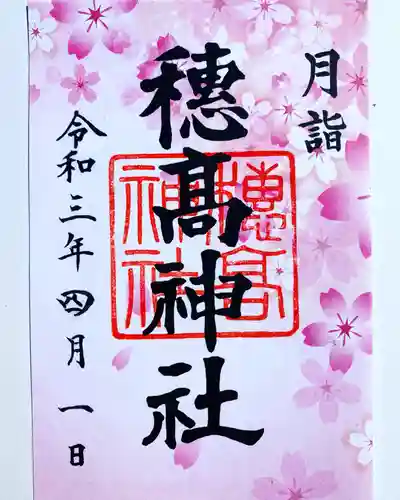 月詣
穂髙神社
穂高神社
令和三年四月一日